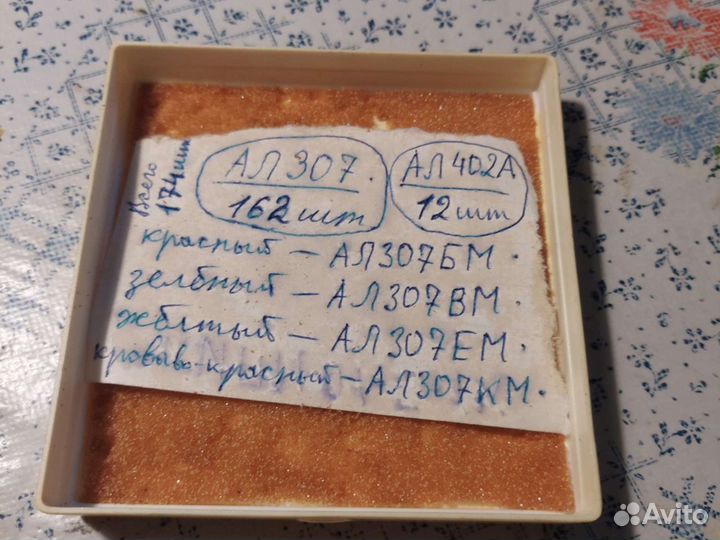 Всего
174шт
АЛ307.
162шт
АЛ402А
12шт
красный – АЛ307БМ.
зелёный – АЛ307ВМ.
жёлтый – АЛ307ЕМ.
кроваво-красный – АЛ307КМ.
Avito